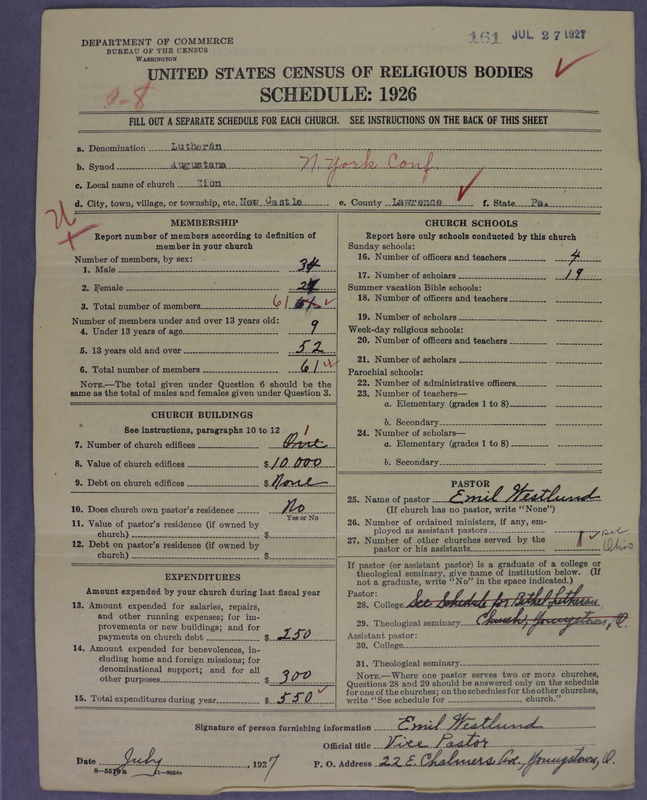 161 JUL 27 1927
DEPARTMENT OF COMMERCE
BUREAU OF THE CENSUS
WASHINGTON
UNITED STATES CENSUS OF RELIGIOUS BODIES
SCHEDULE: 1926
FILL OUT A SEPARATE SCHEDULE FOR EACH CHURCH. SEE INSTRUCTIONS ON THE BACK OF THIS SHEET
a. Denomination Lutheran
b. Synod Augustana N. York Conf.
c. Local name of church Zion
d. City, town, village, or township, etc. New Castle e. County Lawrence f. State Pa.
MEMBERSHIP
Report number of members according to definition of
member in your church
Number of members, by sex:
1. Male 34
2. Female 27
3. Total number of members 61 61
Number of members under and over 13 years old:
4. Under 13 years of age 9
5. 13 years old and over 52
6. Total number of members 61
NOTE.—The total given under Question 6 should be the
same as the total of males and females given under Question 3.
CHURCH BUILDINGS
See instructions, paragraphs 10 to 12
7. Number of church edifices One 1
8. Value of church edifices $ 10 000
9. Debt on church edifices $ None
10. Does church own pastor's residence No
Yes or No
11. Value of pastor's residence (if owned by
church) $
12. Debt on pastor's residence (if owned by
church) $
EXPENDITURES
Amount expended by your church during last fiscal year
13. Amount expended for salaries, repairs,
and other running expenses; for im-
provements or new buildings; and for
payments on church debt $ 250
14. Amount expended for benevolences, in-
cluding home and foreign missions; for
denominational support; and for all
other purposes $ 300
15. Total expenditures during year $ 550
CHURCH SCHOOLS
Report here only schools conducted by this church
Sunday schools:
16. Number of officers and teachers 4
17. Number of scholars 19
Summer vacation Bible schools:
18. Number of officers and teachers
19. Number of scholars
Week-day religious schools:
20. Number of officers and teachers
21. Number of scholars
Parochial schools:
22. Number of administrative officers
23. Number of teachers—
a. Elementary (grades 1 to 8)
b. Secondary
24. Number of scholars—
a. Elementary (grades 1 to 8)
b. Secondary
PASTOR
25. Name of pastor Emil Westlund
(If church has no pastor, write "None")
26. Number of ordained ministers, if any, em-
ployed as assistant pastors
27. Number of other churches served by the
pastor or his assistants 1 see Ohio
If pastor (or assistant pastor) is a graduate of a college or
theological seminary, give name of institution below. (If
not a graduate, write "No" in the space indicated.)
Pastor:
28. College See Schedule for Bethel Lutheran
29. Theological seminary Church, Youngstown, O.
Assistant pastor:
30. College
31. Theological seminary
NOTE.—Where one pastor serves two or more churches,
Questions 28 and 29 should be answered only on the schedule
for one of the churches; on the schedules for the other churches,
write "See schedule for church."
Signature of person furnishing information Emil Westlund
Official title Vice Pastor
Date July, 1927 P. O. Address 22 E. Chalmers Ave, Youngstown, O.